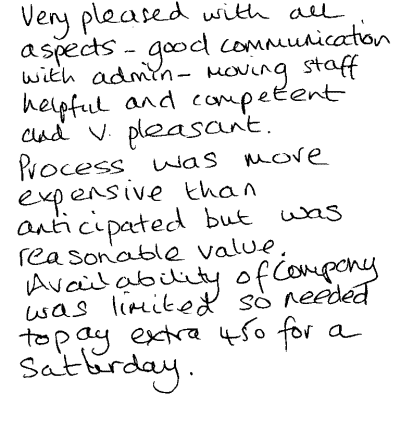 Very pleased with all
aspects - good communication
with admin - moving staff
helpful and competent
and v. pleasant.
Process was more
expensive than
anticipated but was
reasonable value.
Availability of Company
was limited so needed
to pay extra 450 for a
Saturday.